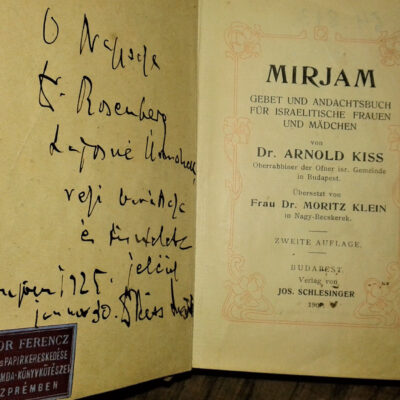 Ő Nagysága
Dr. Rosenberg
Lajosné
régi
és tisztelete
jeléül
1925.
január 30. Kiss
OR FERENCZ
PAPIRKERESKEDÉSE
MDA-KÖNYVKÖTÉSZE
ZPRÉMBEN
MIRJAM
GEBET UND ANDACHTSBUCH
FÜR ISRAELITISCHE FRAUEN
UND MÄDCHEN
von
Dr. ARNOLD KISS
Oberrabbiner der Ofner isr. Gemeinde
in Budapest.
Übersetzt von
Frau Dr. MORITZ KLEIN
in Nagy-Becskerek.
ZWEITE AUFLAGE.
BUDAPEST.
Verlag von
JOS. SCHLESINGER